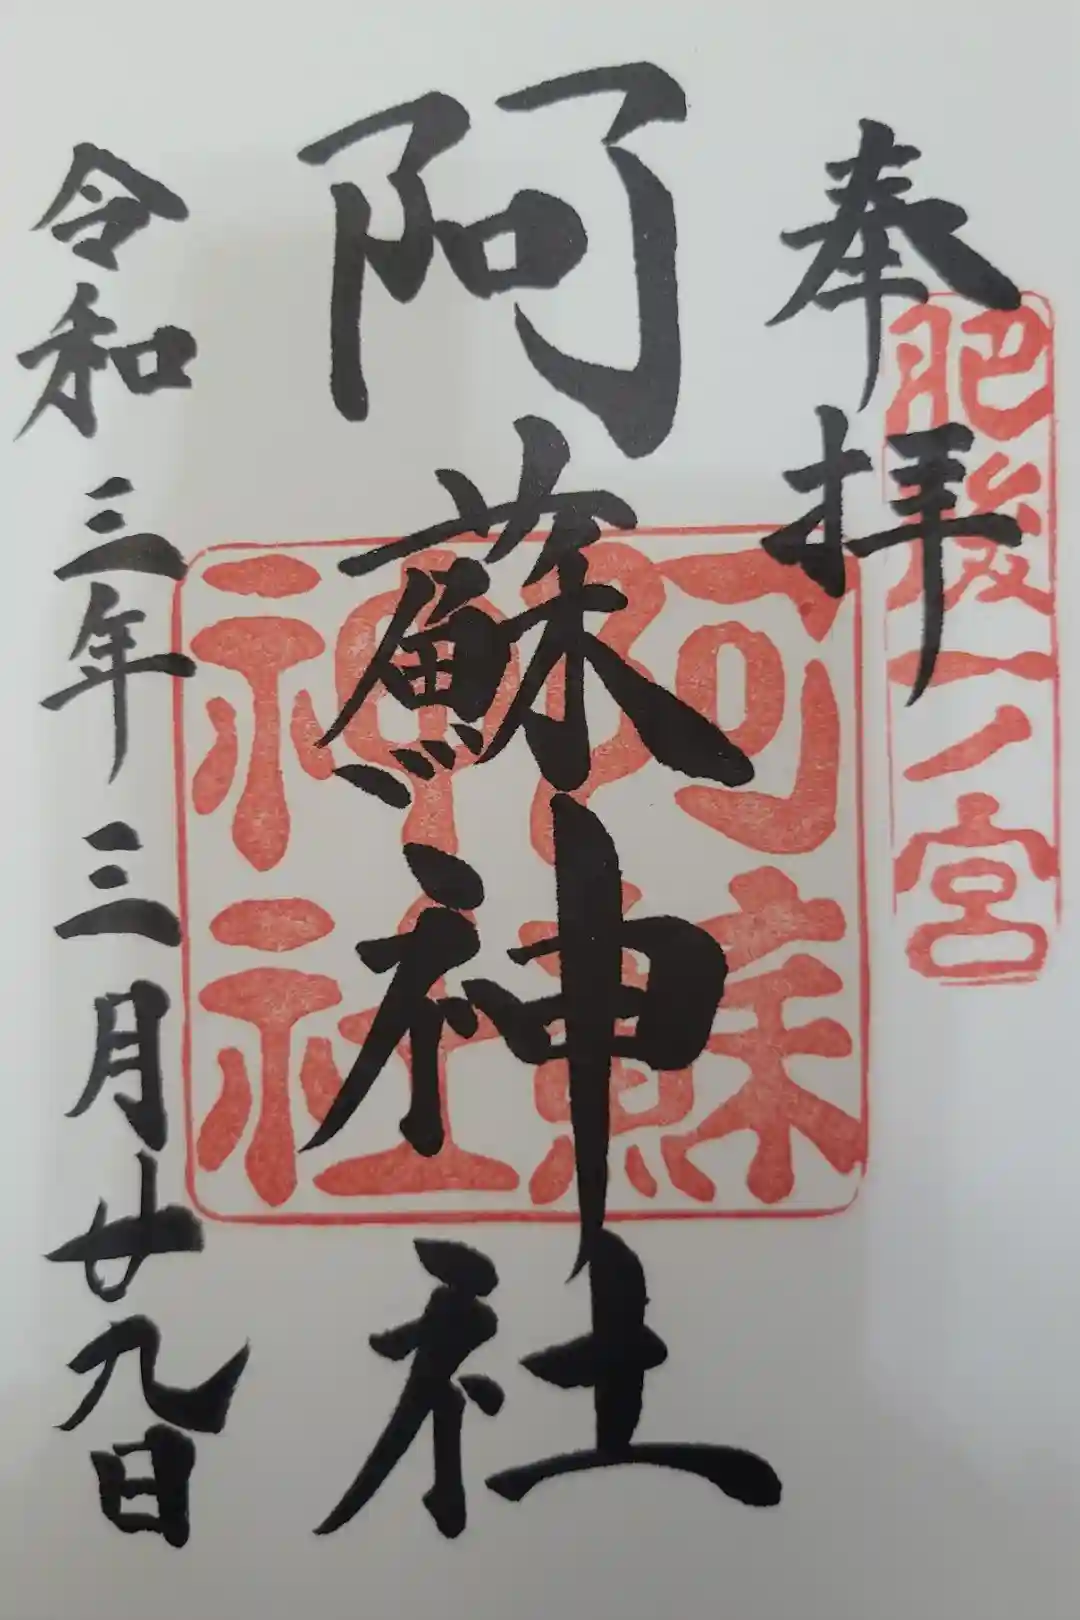 奉拝
肥後一ノ宮
阿蘇神社
阿蘇神社
令和三年三月廿九日